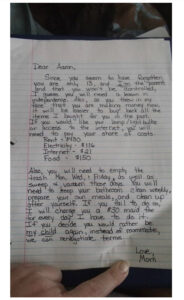 Dear Aaron,
Since you seem to have forgotten
you are only 13, and I'm the parent
and that you won't be controlled,
I guess you will need a lesson in
independence. Also, as you threw in my
face that you are making money now,
it will be easier to buy back all the
items I bought for you in the past.
If you would like your lamp/lightbulbs
or access to the internet, you will
need to pay your share of costs:
Rent - $430
Electricity - $116
Internet - $21
Food - $150
Also, you will need to empty the
trash Mon, Wed, & Friday, as well as
sweep & vacuum those days. You will
need to keep your bathroom clean weekly,
prepare your own meals, and clean up
after yourself. If you fail to do so,
I will charge you a $30 maid fee
for every day I have to do it.
If you decide you would rather be
my child again, instead of roommates,
we can renegotiate terms.
Love,
Mom